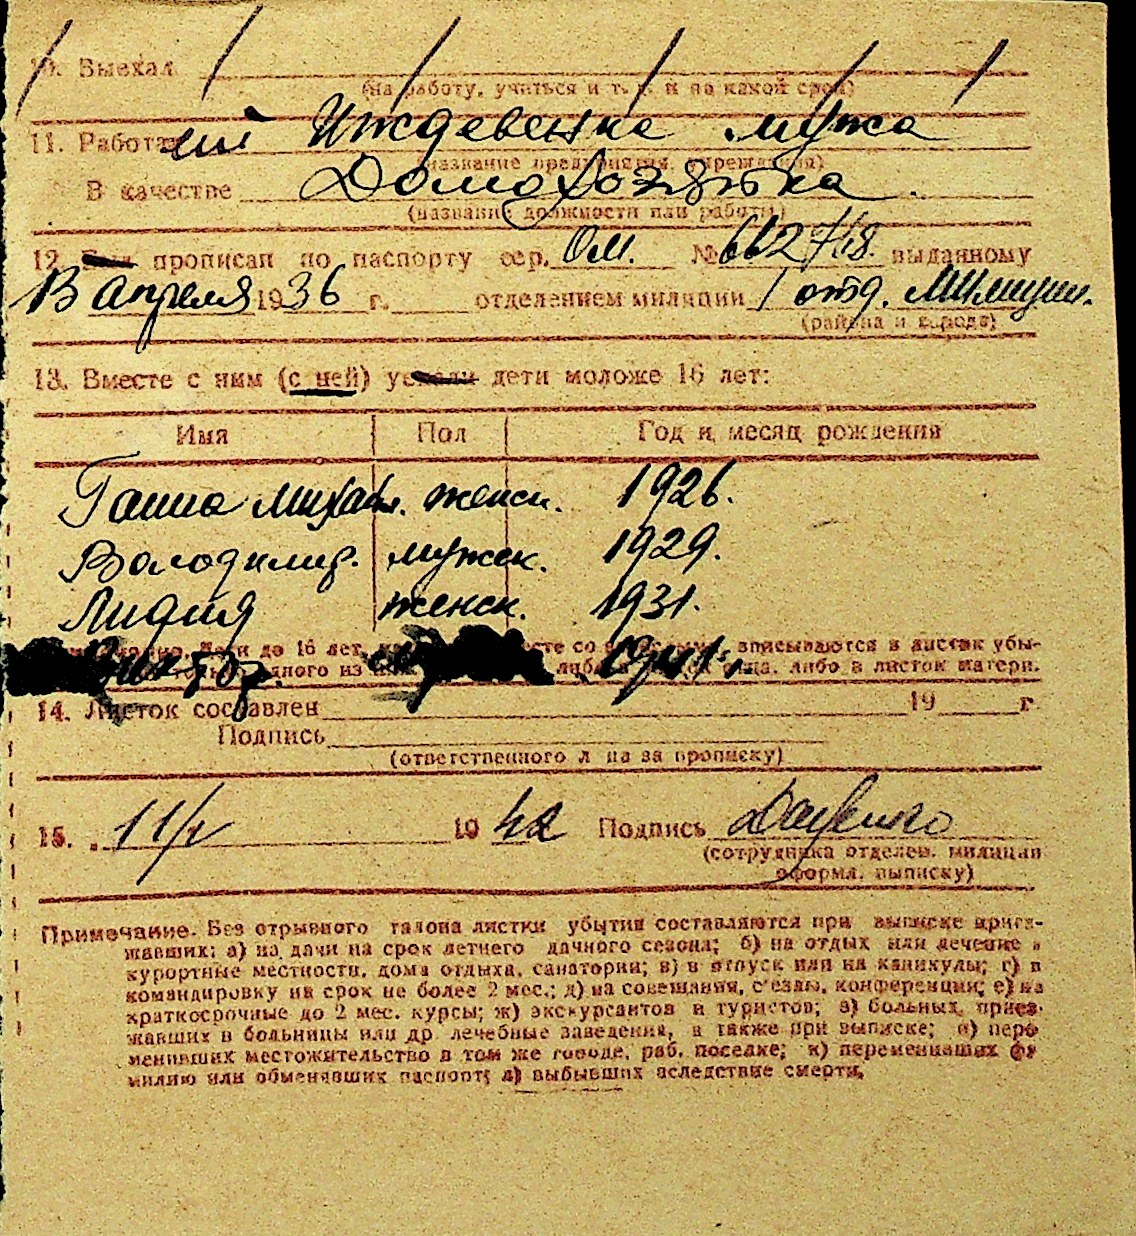 10. Выехал
(на работу, учиться и т. д. и на какой срок)
11. Работал Иждевение мужа
(название предприятия, учреждения)
В качестве Домохозяйка.
(название должности или работы)
12. Был прописан по паспорту сер. ОМ. № 662718. выданному
13 апреля 1936 г. отделением милиции 1 отд. Милиции.
(района и города)
13. Вместе с ним (с ней) уехали дети моложе 16 лет:
Имя Пол Год и месяц рождения
Ганна Михайл. женск. 1926.
Володимир. мужск. 1929.
Лидия женск. 1931.
до 16 лет, вписываются в листок убы-
одного из либо в листок матери.
1941.
14. Листок составлен 19 г.
Подпись
(ответственного лица за прописку)
15. 11/V 1942 Подпись
(сотрудника отделен. милиции
оформл. выписку)
Примечание. Без отрывного талона листки убытия составляются при выписке приез-
жавших: а) на дачи на срок летнего дачного сезона; б) на отдых или лечение в
курортные местности, дома отдыха, санатории; в) в отпуск или на каникулы; г) в
командировку на срок не более 2 мес.; д) на совещания, с'езды, конференции; е) на
краткосрочные до 2 мес. курсы; ж) экскурсантов и туристов; з) больных, приез-
жавших в больницы или др. лечебные заведения, а также при выписке; и) пере-
менивших местожительство в том же городе, раб. поселке; к) переменивших фа-
милию или обменявших паспорт; л) выбывших вследствие смерти.